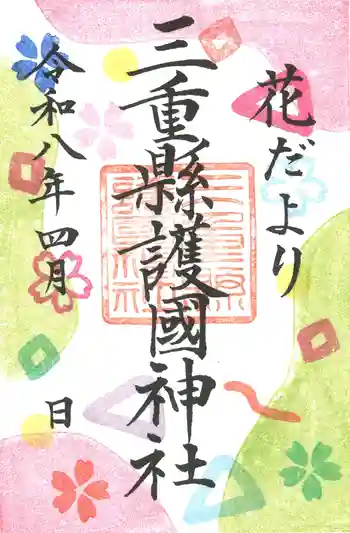 花だより
三重縣護國神社
令和八年四月
日